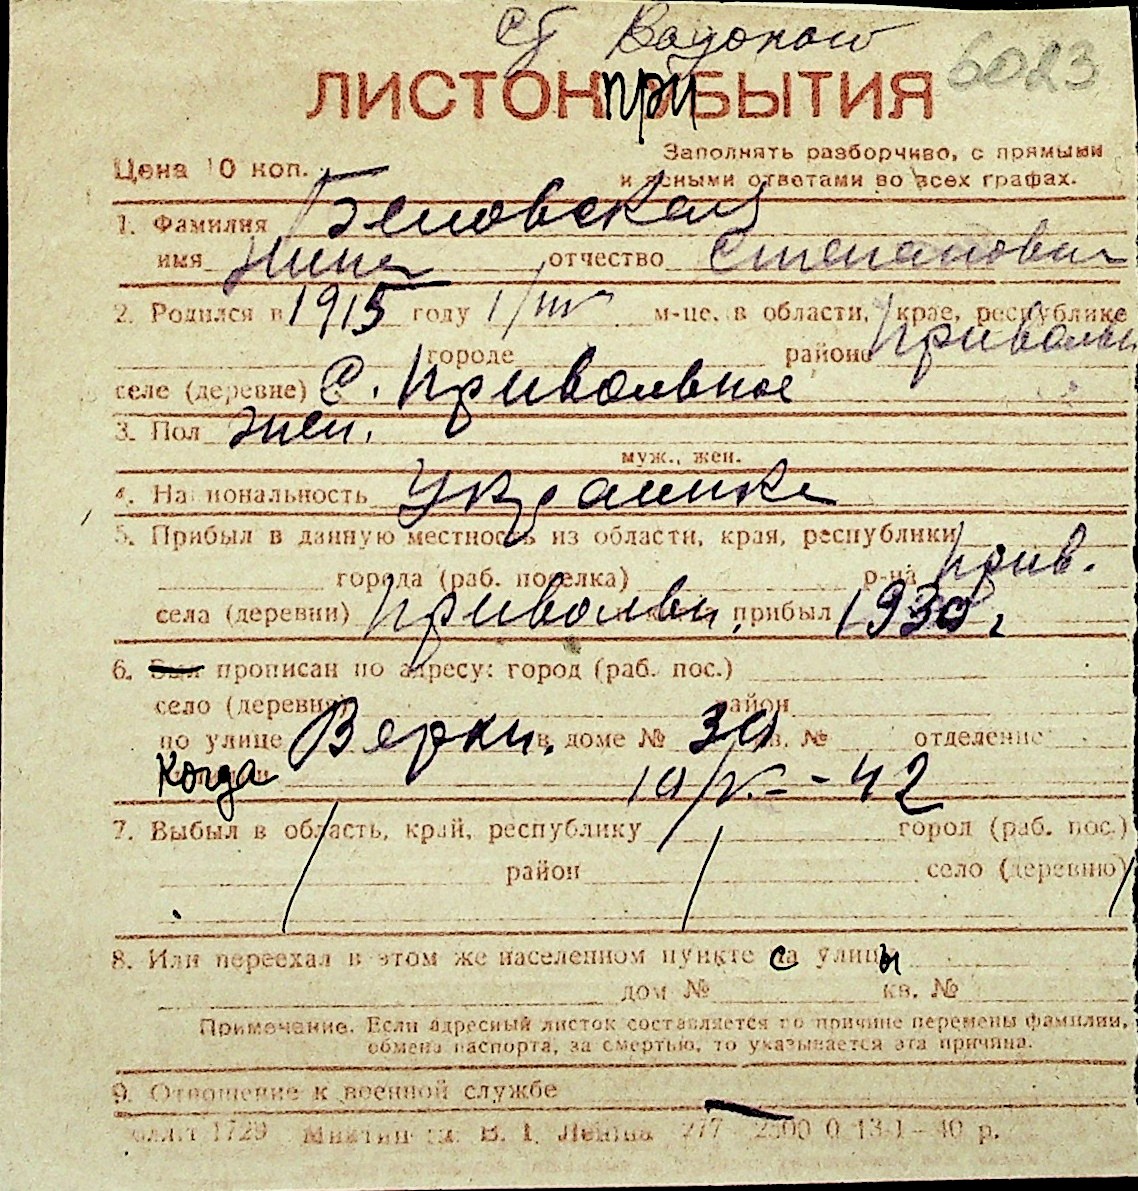 ст Водокан 6023
ЛИСТОК ПРИБЫТИЯ
Заполнять разборчиво, с прямыми
Цена 10 коп. и ясными ответами во всех графах.
1. Фамилия Беловская
имя Нина отчество Степановна
2. Родился в 1915 году 1/III м-це, в области, крае, республике
городе районе Привольн
селе (деревне) с. Привольное
3. Пол жен.
муж., жен.
4. Национальность Украинка
5. Прибыл в данную местность из области, края, республики
города (раб. поселка) р-на Прив.
села (деревни) Привольн. прибыл 1930 г
6. Был прописан по адресу: город (раб. пос.)
село (деревня) район
по улице Верхн. в доме № 30 кв. № отделение
Когда 10/V - 42
7. Выбыл в область, край, республику город (раб. пос.)
район село (деревню)
8. Или переехал в этом же населенном пункте с улицы
дом № кв. №
Примечание. Если адресный листок составляется по причине перемены фамилии,
обмена паспорта, за смертью, то указывается эта причина.
9. Отношение к военной службе
1729 В. И. Ленина 277 2500 0 13-I-40 р.